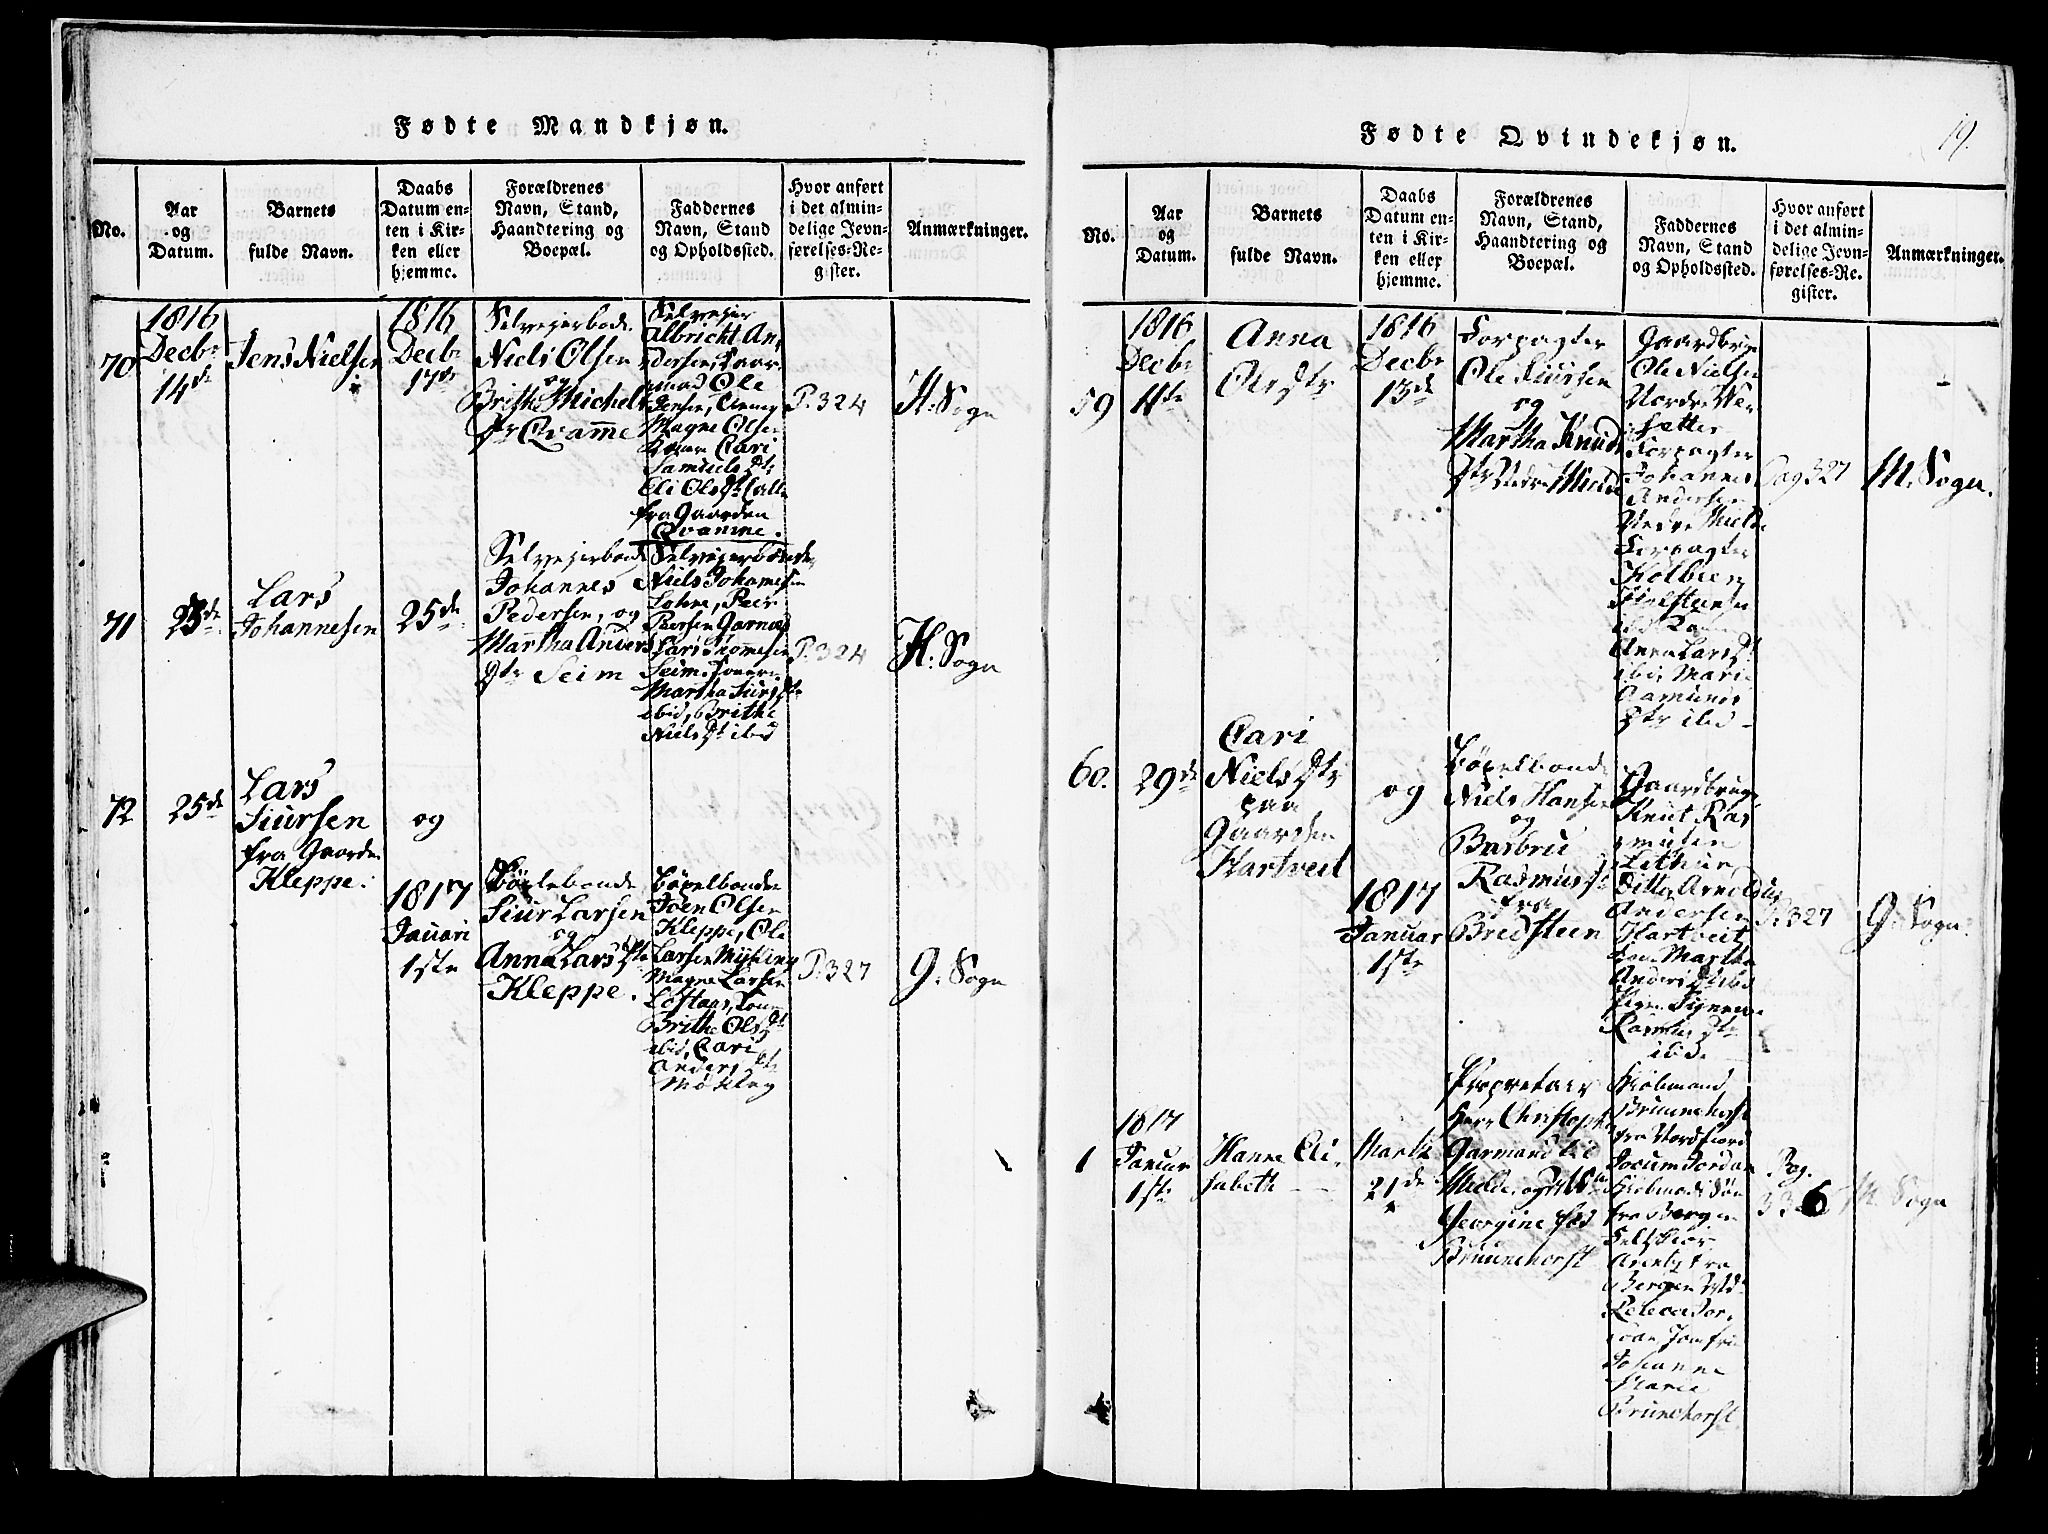 Fødte Mandkjøn.
No.
Aar
og
Datum.
Barnets
fulde Navn.
Daabs
Datum en-
ten i Kir-
ken eller
hjemme.
Forældrenes
Navn, Stand,
Haandtering og
Boepæl.
Faddernes
Navn, Stand
og Opholdssted.
Hvor anført
i det almin-
delige Jevn-
førelses-Re-
gister.
Anmærkninger.
70
1816
Decbr
14de
Jens Nielsen
1816
Decbr
17de
Selveyerbode
Niels Olsen
og
Brithe Michels
Dtr Qvamme
Selveyer
Albricht An,
dersen,
Ole
Jensen,
Magne Olsen
Cari
Samuels Dtr
Eli Ols Dtr alle
fra Gaarden
Qvamme.
P. 324
H: Sogn
71
25de
Lars
Johannesen
25de
Selveyerbonde
Johannes
Pedersen, og
Martha Anders
Dtr Seim
Selveyerbonde
Niels Johannesen
Lohne, Peer
Peersen Garnæs
Lars Thomesen
Seim,
Martha Siurs Dtr
ibid, Brithe
Niels Dtr ibid
P. 324
H: Sogn
72
25de
Lars
Siursen
fra Gaarden
Kleppe.
og
1817
Januari
1ste
Bøxlebonde
Siur Larsen
og
Anna Lars Dtr
Kleppe.
Bøxelbonde
Joen Olsen
Kleppe, Ole
Larsen Myking
Magne Larsen
Loftaas,
Brithe Ols Dtr
ibid, Cari
Anders Dtr
Møkling
P. 327
G: Sogn
Fødte Qvindekjøn.
19.
No.
Aar
og
Datum.
Barnets
fulde Navn.
Daabs
Datum en-
ten i Kir-
ken eller
hjemme.
Forældrenes
Navn, Stand,
Haandtering og
Boepæl.
Faddernes
Navn, Stand
og Opholdssted.
Hvor anført
i det almin-
delige Jevn-
førelses-Re-
gister.
Anmærkninger.
59
1816
Decbr
11te
Anna
Ols Dtr
1816
Decbr
13de
Forpagter
Ole Siursen
og
Martha Knuds
Dtr Nedre Milde
Gaardbruger
Ole Nielsen
Nordre
Forpagter
Johannes
Andersen
Nedre Milde
Forpagter
Kolbeen
Holsteensen
ibid
Anna Lars Dtr
ibid, Mari
Aamunds
Dtr ibid
Pag 327
M. Sogn.
60.
29de
Cari
Niels Dtr
paa
Gaarden
Hartveit
og
1817
Januar
1ste
Bøxelbonde
Niels Hansen
og
Barbrue
Rasmus Dtr
fra
Bredsteen
Gaardbruger
Knut Ras
musen
Ditto Arnoldus
Andersen
Hartveit
Martha
Anders Dtr ibid
Pige
Rasmus Dtr
ibid.
P. 327
G: Sogn.
1
1817
Januar
1ste
Hanne Eli,
sabeth
Martz
21de
Propretair
Herr Christopher
Garmand til
Milde, og
Georgine fød
Bruunehorst
Kiøbmand
Bruunehorst
fra Nordfiord
Jocum Jordan
Kiøbmands Søn
fra Bergen
fra
Bergen
Johanne
Marie
Brunehorst
Pag.
336
M. Sogn